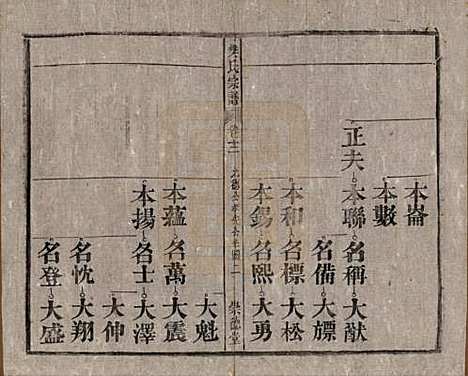 本崙
本數
正夫 本聯 名稱 大猷
名備 大嫖
本和 名標 大松
本錫 名熙 大勇
氏宗譜
大魁
本蘊 名萬 大震
本揚 名士 大澤
大伸
名忱 大翔
名登 大盛